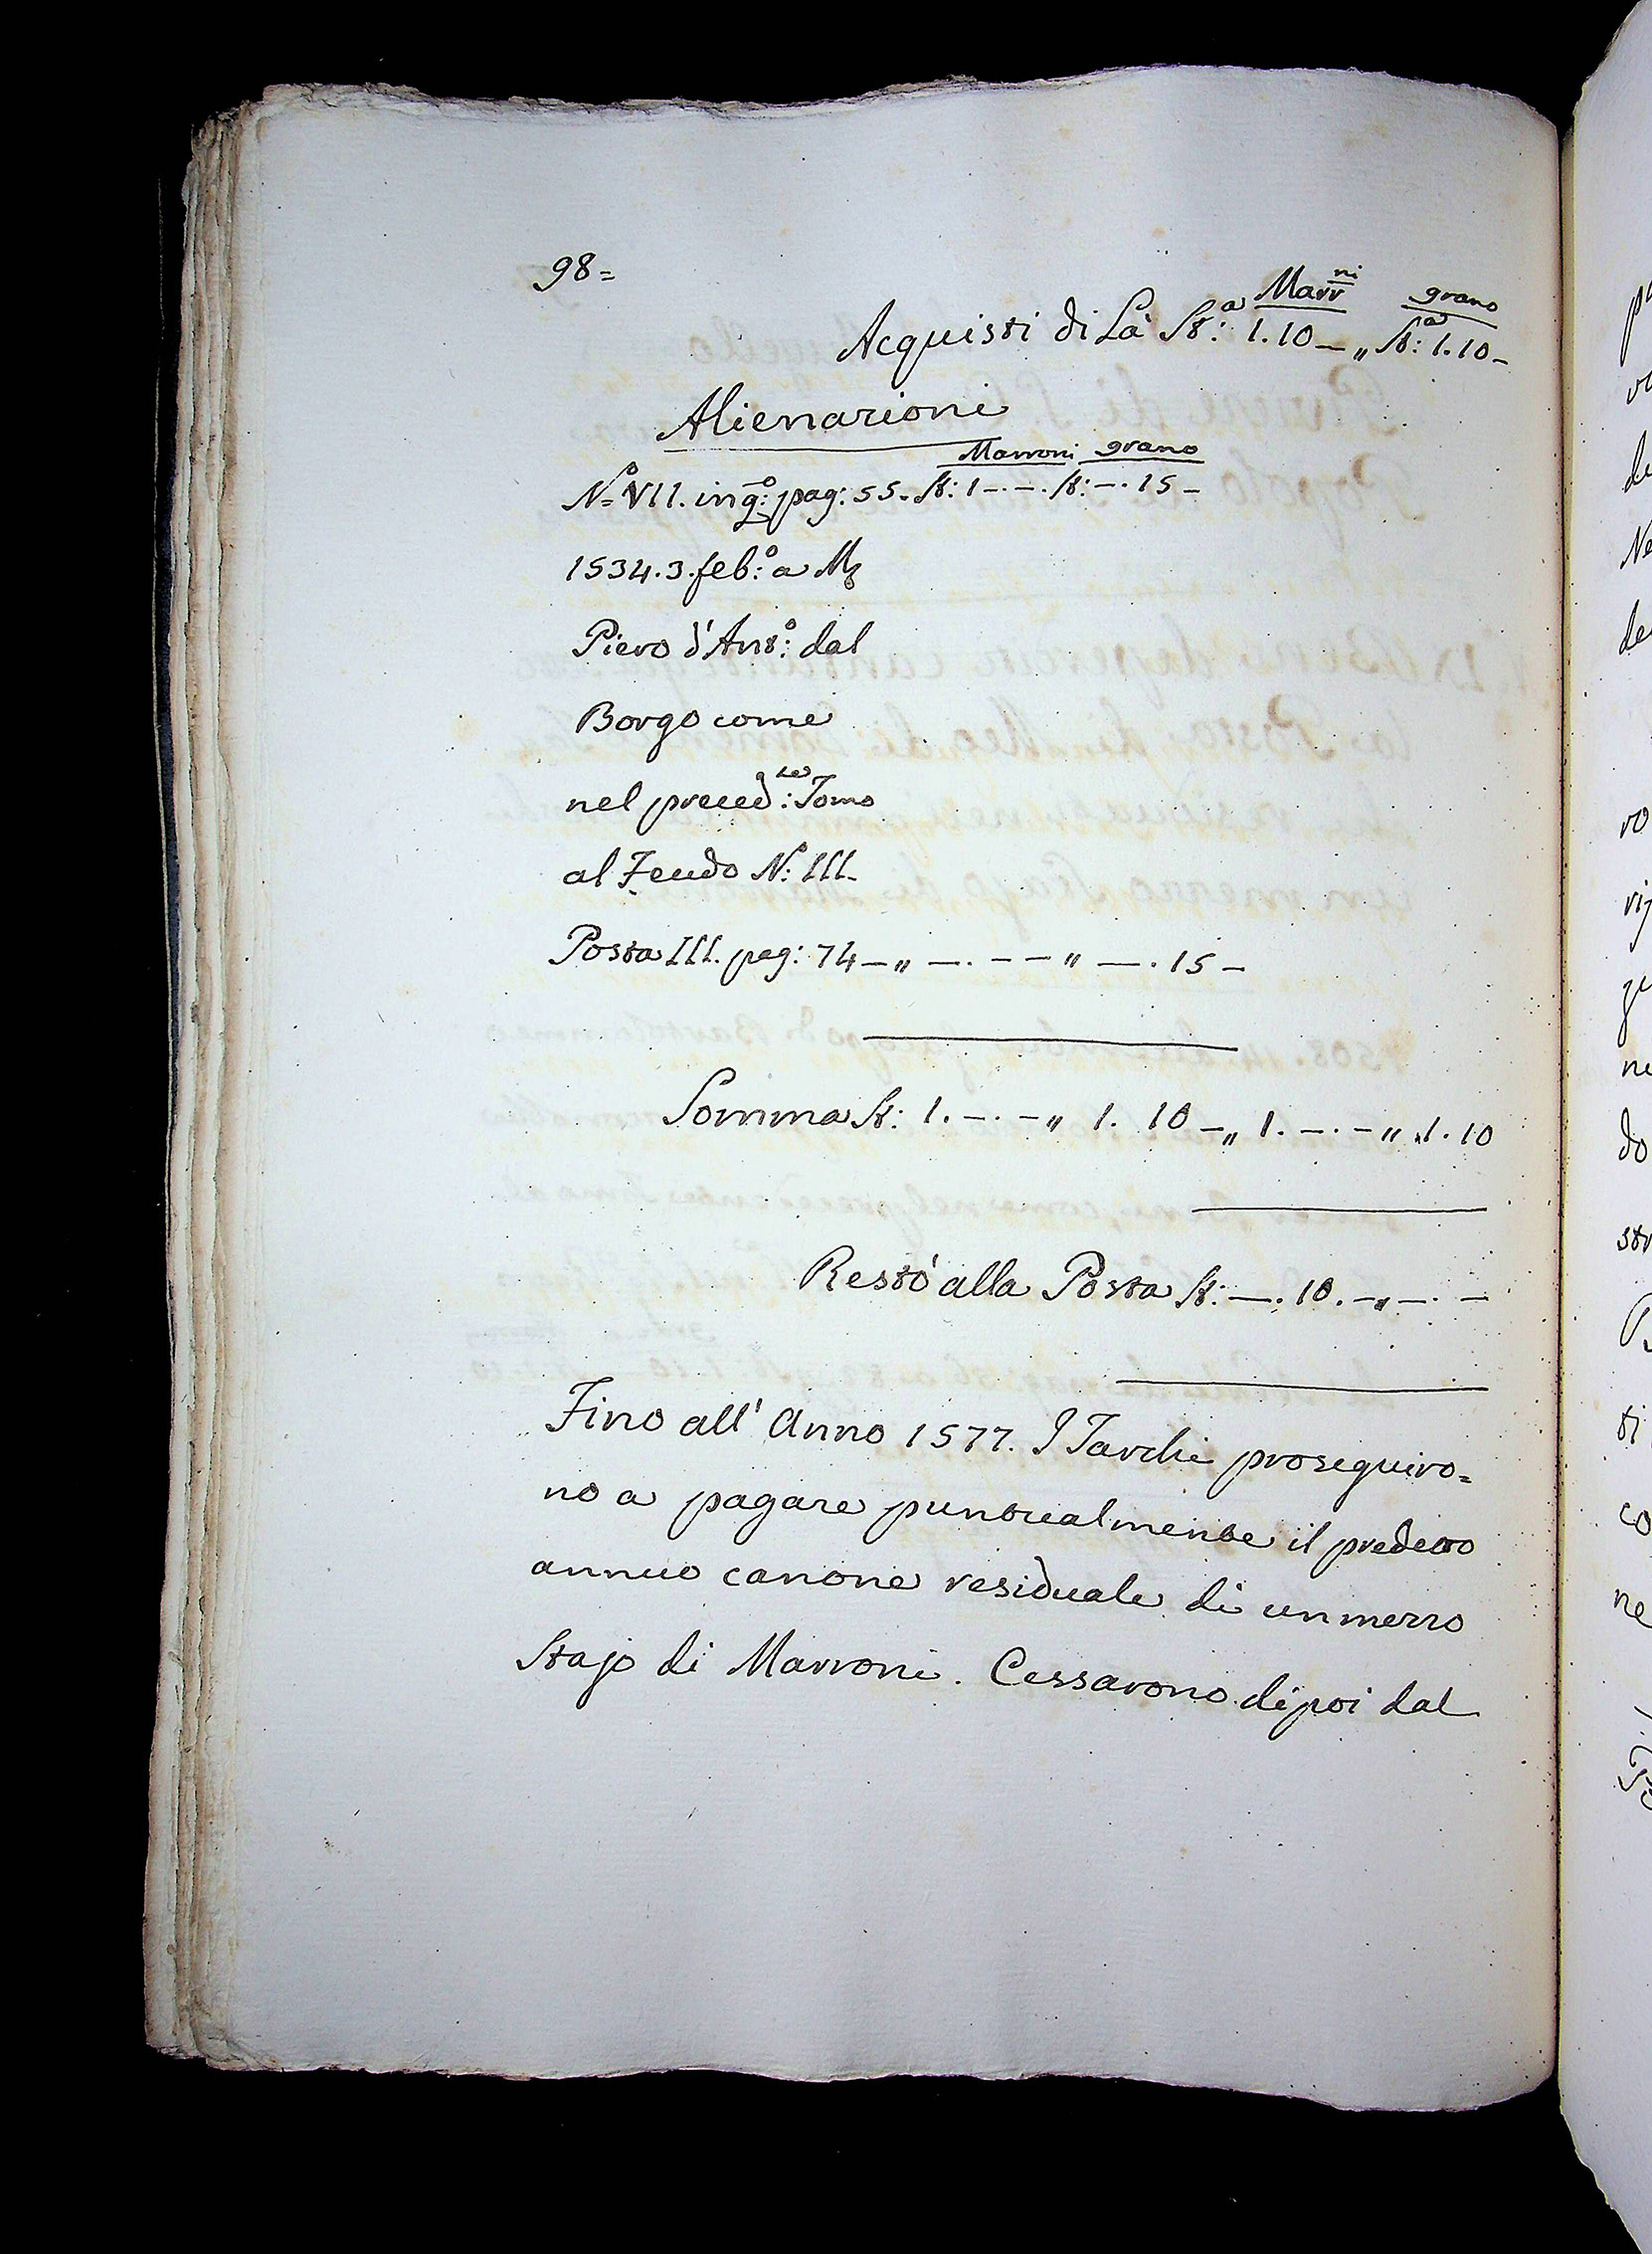 98=
Marr:ni grano
Acquisti di Là St:a 1.10 — „ St:a 1.10 —
Alienazioni
Marroni grano
N:o VII. in q:o pag: 55. St: 1 —. —. St: —. 15 —
1534. 3. feb:o a M
Piero d'Ant:o dal
Borgo come
nel preced:te Tomo
al Feudo N: III.
Posta III. pag: 74 — „ —. — — „ —. 15 —
Somma St: 1. —. — „ 1. 10 — „ 1. —. — „ 1. 10
Restò alla Posta St: —. 10. — „ —. —
Fino all' Anno 1577. I Tarchi proseguiro=
no a pagare puntualmente il predetto
annuo canone residuale di un mezzo
Stajo di Marroni. Cessarono dipoi dal